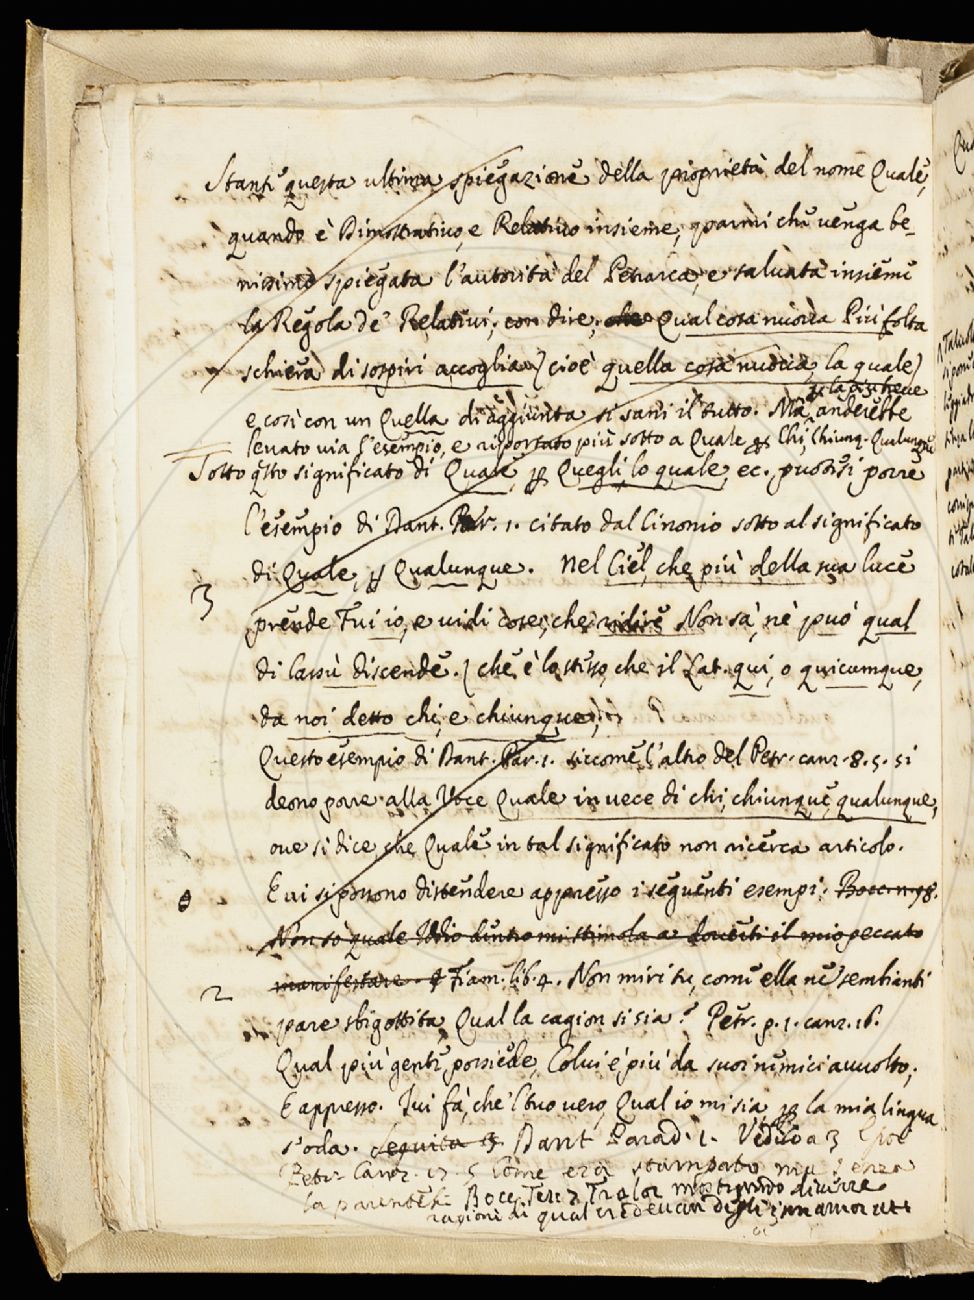 Stante questa ultima spiegazione della proprietà del nome Quale,
quando è Dimostrativo, e Relativo insieme, parmi che venga be-
nissimo spiegata l'autorità del Petrarca, e salvata insieme
la Regola de' Relativi, con dire, che Qual cosa Più folta
schiera di sospiri accoglia) cioè quella cosa la quale)
e così con un Quella di aggiunta si sani il tutto. Mà anderebbe
levato via l'esempio, e riportato più sotto a Quale Chi, Chiunq. Qualunq
Sotto qsto significato di Quale, Quegli, lo quale, ec. puossi porre
l'esempio di Dant. Par. 1. citato dal Cinonio sotto al significato
di Quale, Qualunque. Nel Ciel, che più della sua luce
3
prende Fui io, e vidi cose, che ridire Non sà, nè può qual
di lassù discende.) che è lo stesso, che il Lat. qui, o quicumque,
da noi detto chi, e chiunque,
Questo esempio di Dant. Par. 1. siccome l'altro del Petr. canz. 8. 5. si
deono porre alla Voce Quale in vece di chi, chiunque, qualunque,
ove si dice, che Quale in tal significato non ricerca articolo.
E vi si possono distendere appresso i seguenti esempi. Bocc. n. 98.
Non so quale Iddio dentro mi stimola a doverti il mio peccato
2
manifestare. Fiam. lib. 4. Non miri tu, com' ella ne' sembianti
pare sbigottita Qual la cagion si sia? Petr. p. 1. canz. 16.
Qual più gente possiede, Colui è più da suoi nemici avvolto,
E appresso. Ivi fà, che 'l tuo vero, Qual io mi sia, la mia lingua
s'oda. Seguita 3. Dant Parad. 1. Vedi a 3
Petr Canz. 17. 5 Come era stampato ma senza
la parentesi Bocc. Tratar
ragioni di qual degli innamorati